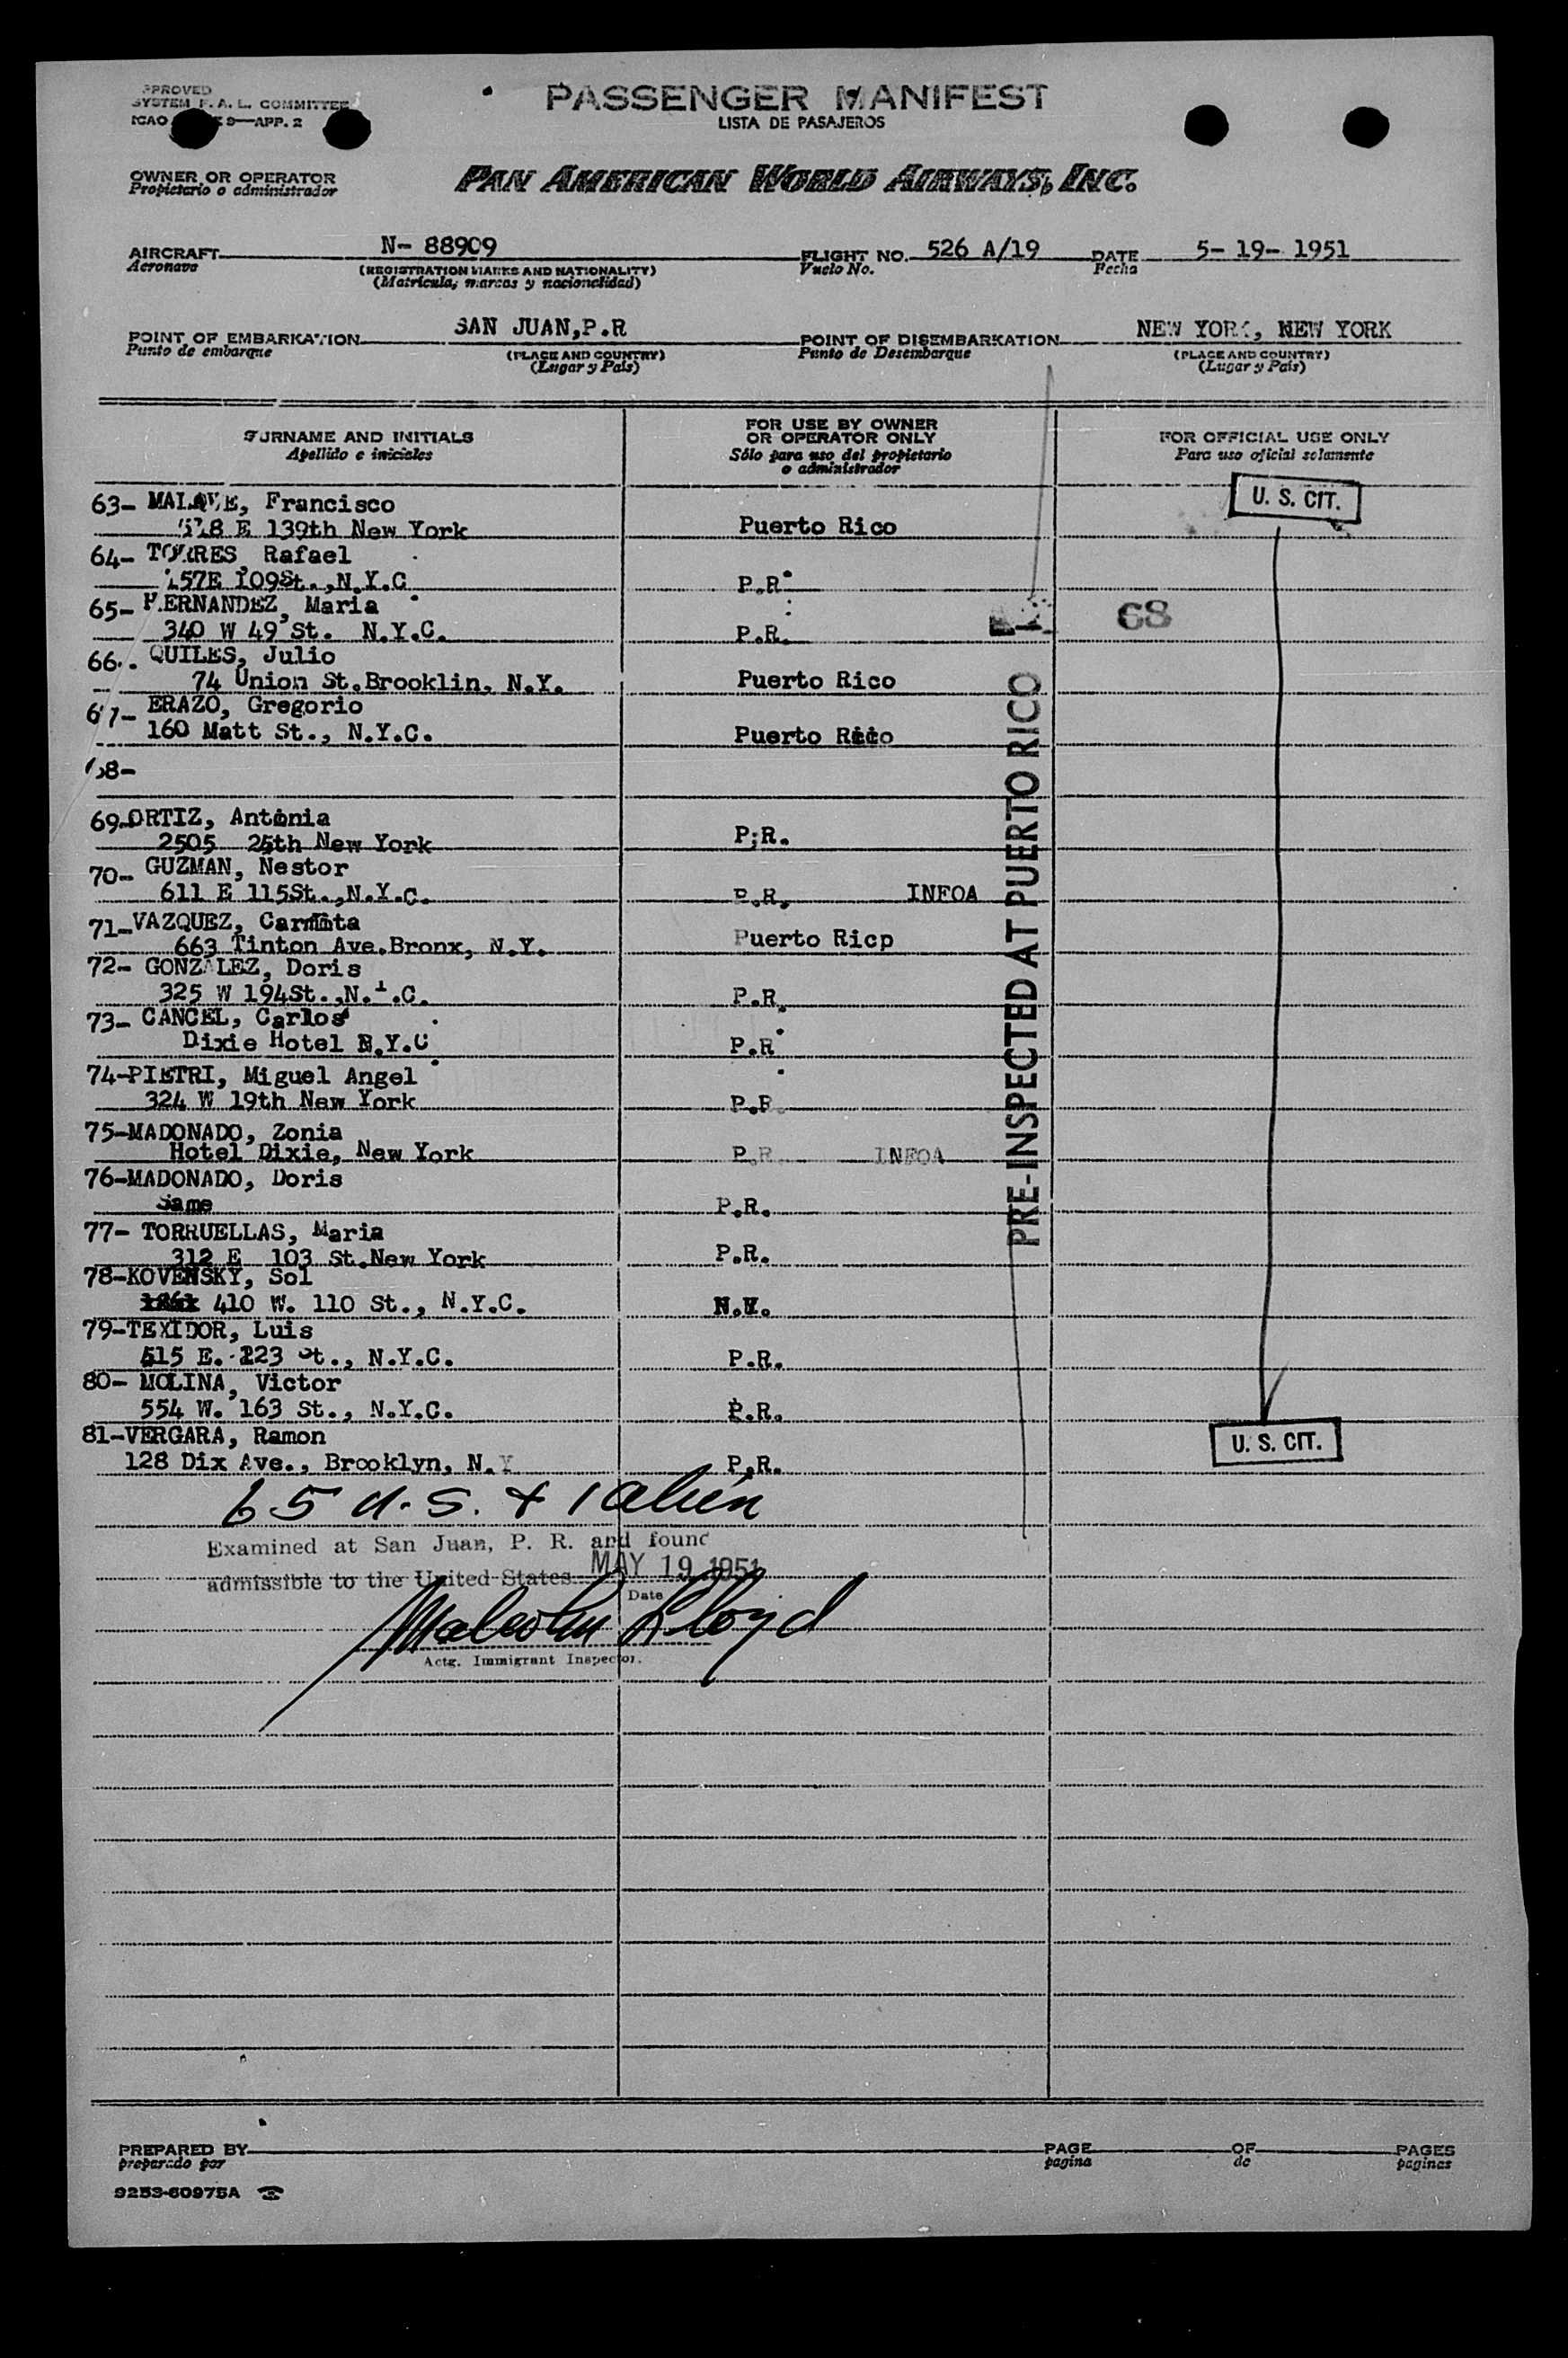 APPROVED
SYSTEM F. A. L. COMMITTEE
ICAO 9—APP. 2
PASSENGER MANIFEST
LISTA DE PASAJEROS
OWNER OR OPERATOR
Propietario o administrador
PAN AMERICAN WORLD AIRWAYS, INC.
AIRCRAFT N- 88909 FLIGHT NO. 526 A/19 DATE 5- 19- 1951
Aeronave (REGISTRATION MARKS AND NATIONALITY) Vuelo No. Fecha
(Matricula, marcas y nacionalidad)
POINT OF EMBARKATION SAN JUAN,P.R POINT OF DISEMBARKATION NEW YORK, NEW YORK
Punto de embarque (PLACE AND COUNTRY) Punto de Desembarque (PLACE AND COUNTRY)
(Lugar y Pais) (Lugar y Pais)
SURNAME AND INITIALS FOR USE BY OWNER OR OPERATOR ONLY FOR OFFICIAL USE ONLY
Apellido e iniciales Sólo para uso del propietario o administrador Para uso oficial solamente
63- MALAVE, Francisco U. S. CIT.
518 E 139th New York Puerto Rico
64- TORRES, Rafael
157E 109St.,N.Y.C P.R
65- HERNANDEZ, Maria 68
340 W 49 St. N.Y.C. P.R.
66. QUILES, Julio
74 Union St.Brooklin, N.Y. Puerto Rico
67- ERAZO, Gregorio
160 Matt St., N.Y.C. Puerto Rico
68-
69-ORTIZ, Antonia
2505 25th New York P.R.
70- GUZMAN, Nestor
611 E 115St.,N.Y.C. P.R. INFOA
71-VAZQUEZ, Carmita
663 Tinton Ave.Bronx, N.Y. Puerto Ricp
72- GONZALEZ, Doris
325 W 194St.,N.Y.C. P.R.
73- CANCEL, Carlos
Dixie Hotel N.Y.C P.R
74-PIETRI, Miguel Angel
324 W 19th New York P.R.
75-MADONADO, Zonia
Hotel Dixie, New York P.R. INFOA
76-MADONADO, Doris
Same P.R.
77- TORRUELLAS, Maria
312 E 103 St.New York P.R.
78-KOVENSKY, Sol
410 W. 110 St., N.Y.C. N.Y.
79-TEXIDOR, Luis
515 E. 223 St., N.Y.C. P.R.
80- MOLINA, Victor
554 W. 163 St., N.Y.C. P.R.
81-VERGARA, Ramon U. S. CIT.
128 Dix Ave., Brooklyn, N.Y P.R.
PRE-INSPECTED AT PUERTO RICO
65 U.S. + 1 alien
Examined at San Juan, P. R. and found
admissible to the United States MAY 19 1951
Date
Malcolm Lloyd
Actg. Immigrant Inspector.
PREPARED BY PAGE OF PAGES
preparado por pagina de paginas
9253-60975A